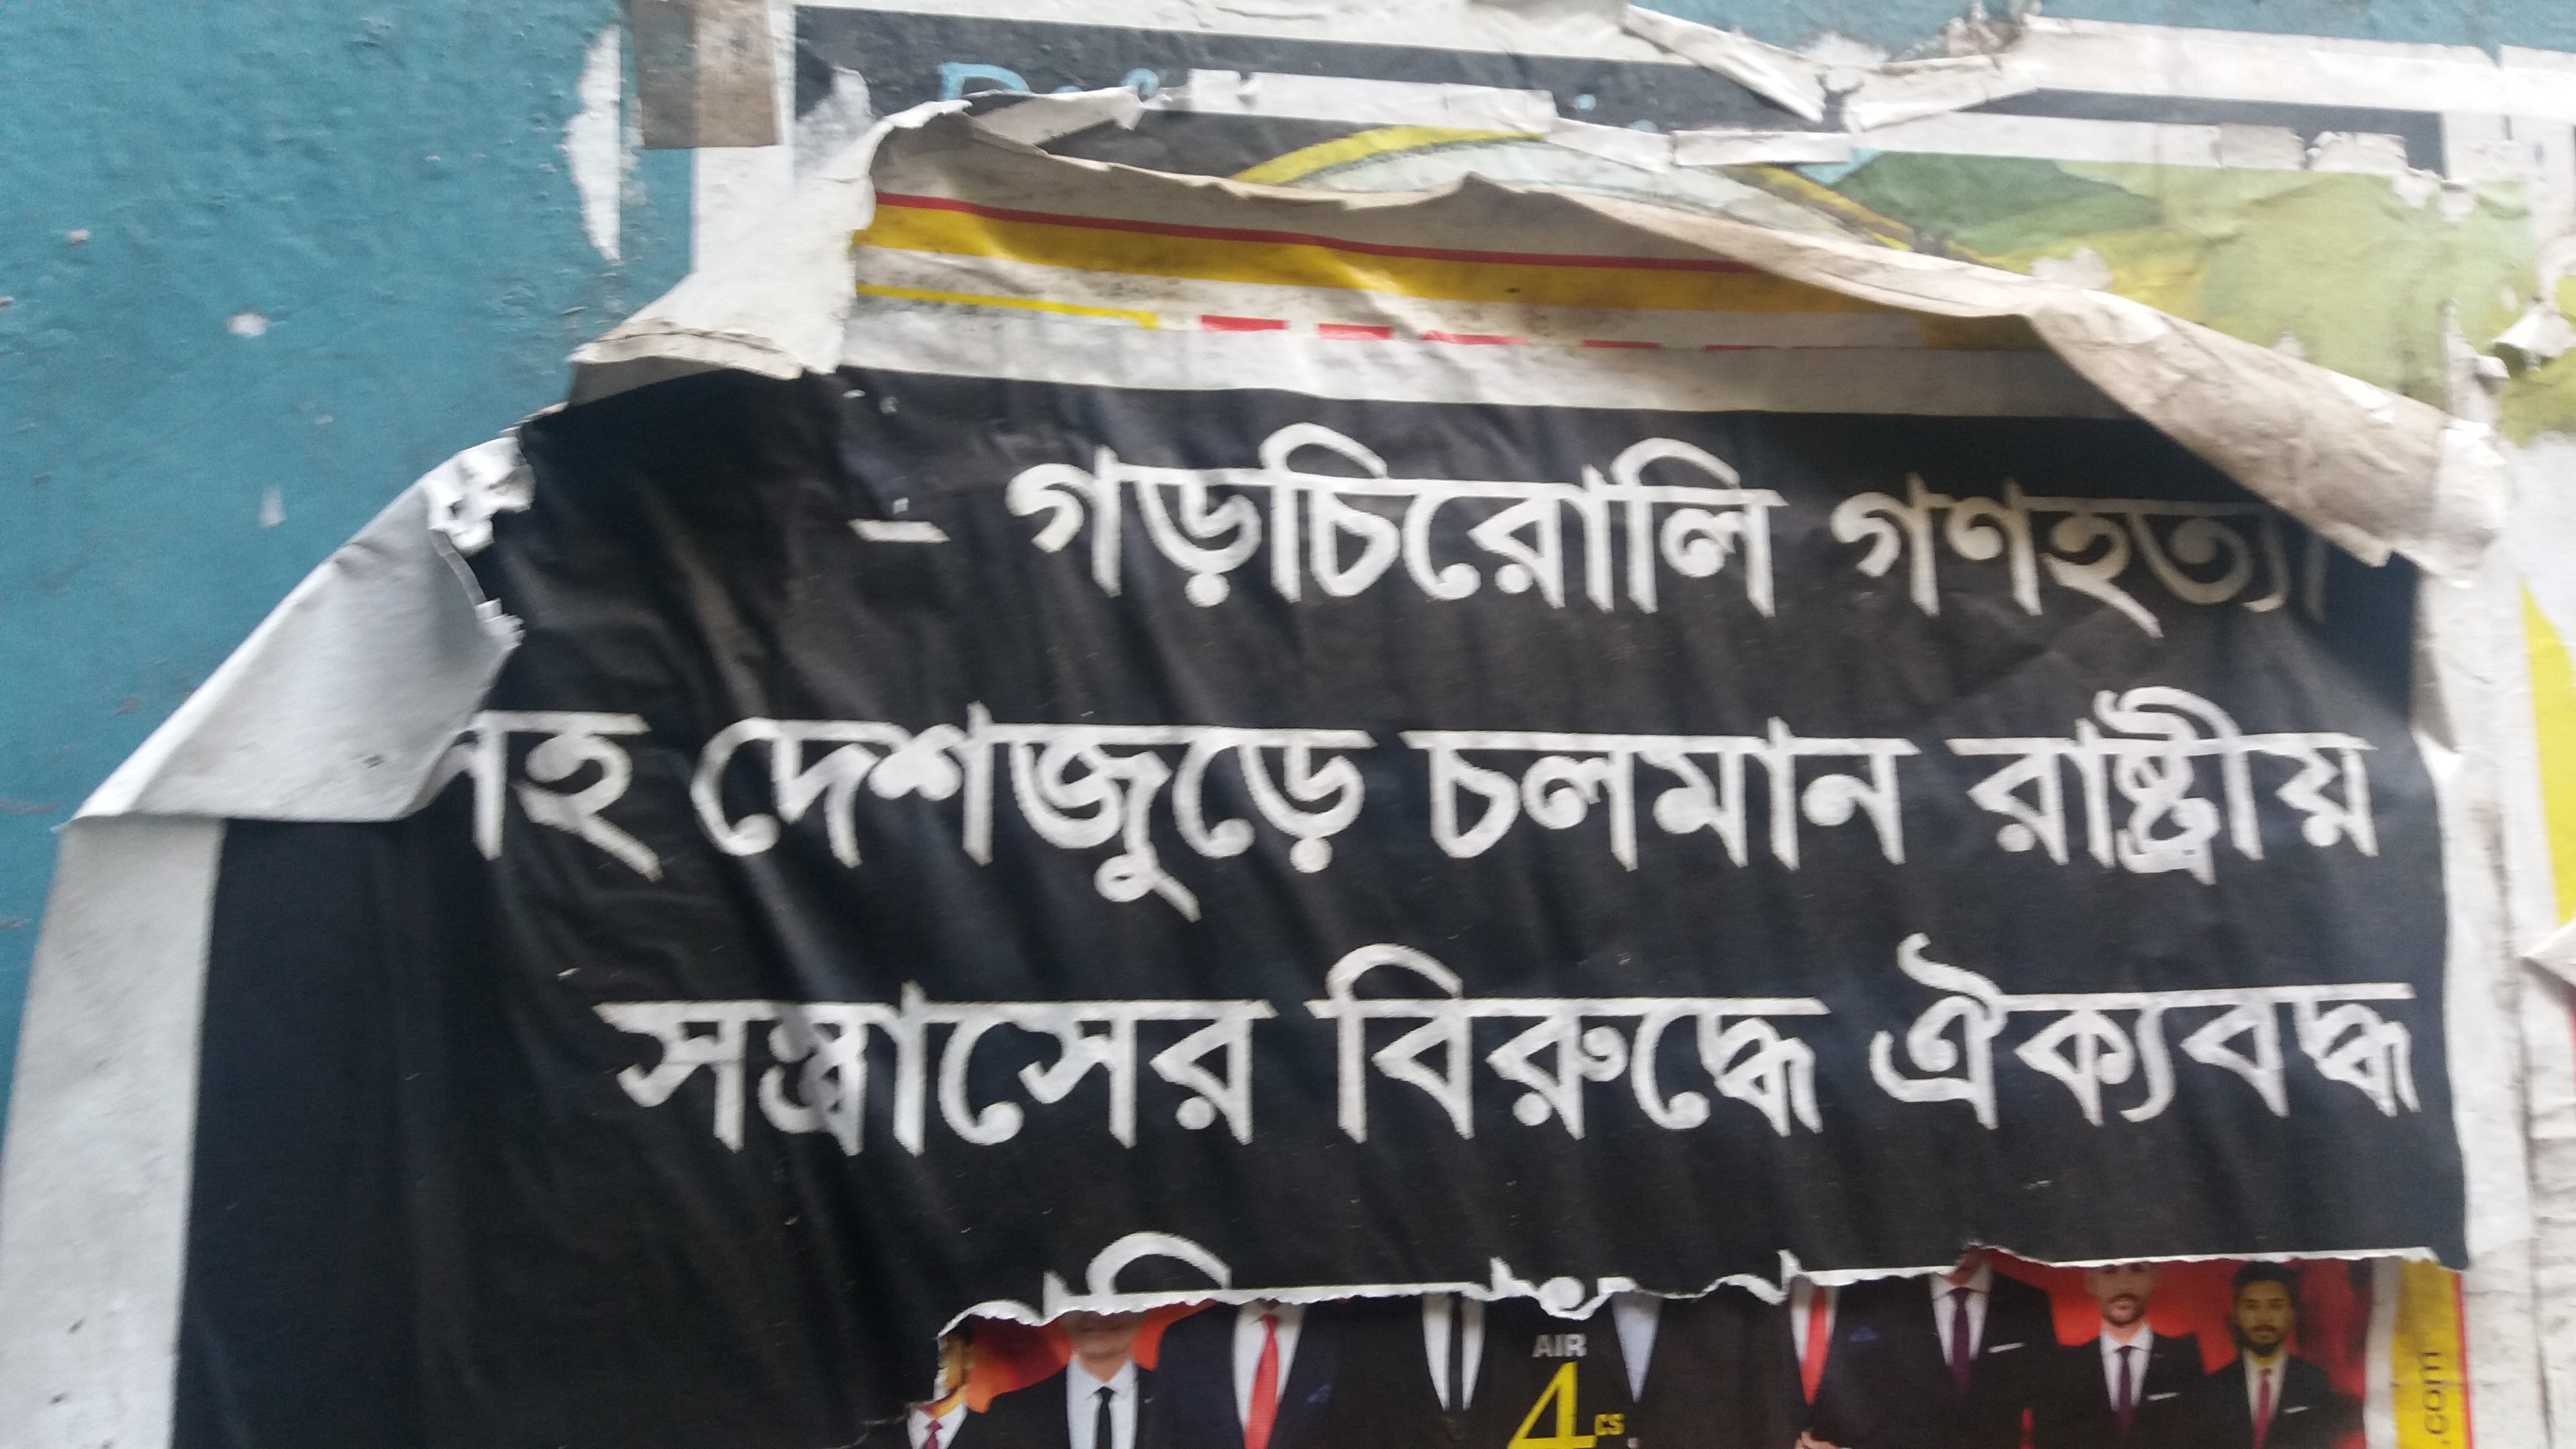 – গড়চিরোলি গণহত্যা
সহ দেশজুড়ে চলমান রাষ্ট্রীয়
সন্ত্রাসের বিরুদ্ধে ঐক্যবদ্ধ
AIR
4
cs
.com